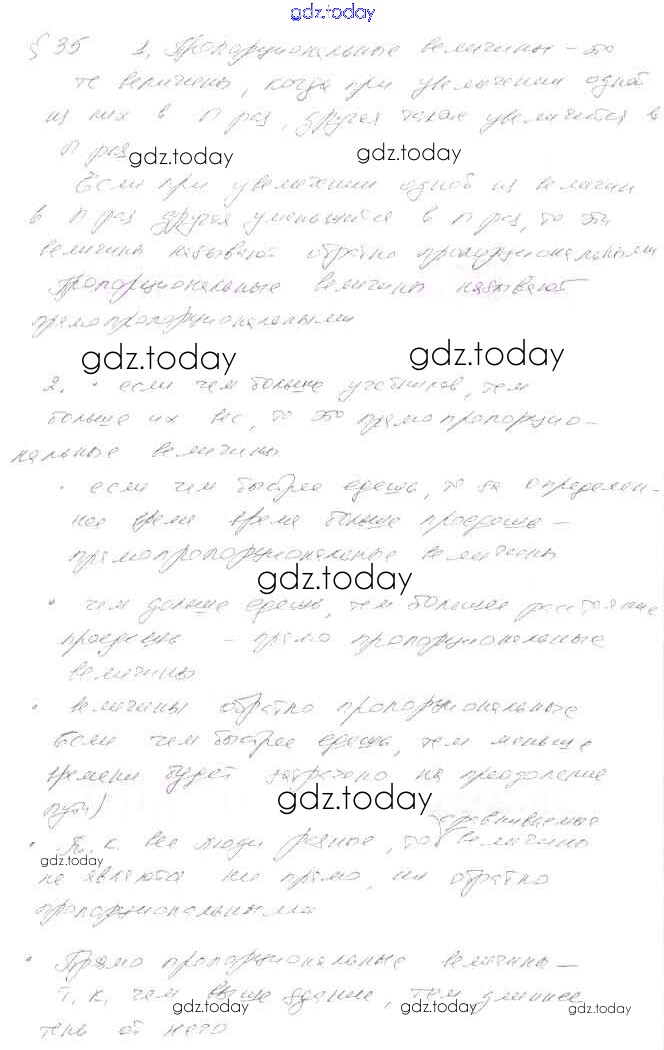 gdz.today
§ 35 1. Пропорциональные величины – это
те величины, когда при увеличении одной
из них в n раз, другая также увеличится в
n раз
gdz.today gdz.today
Если при увеличении одной из величин
в n раз другая уменьшится в n раз, то эти
величины называют обратно пропорциональными
Пропорциональные величины называют
прямо пропорциональными
gdz.today gdz.today
2. • если чем больше учебников, тем
больше их вес, то это прямо пропорцио-
нальные величины
• если чем быстрее едешь, то за определен-
ное время время больше проедешь –
прямо пропорциональные величины
gdz.today
• чем дольше едешь, тем большее расстояние
проедешь – прямо пропорциональные
величины
• величины обратно пропорциональные
Если чем быстрее едешь, тем меньше
времени будет затрачено на преодоление
пути)
gdz.today
сравниваемые
• Т. к. все люди разные, то величины
gdz.today
не являются ни прямо, ни обратно
пропорциональными
• Прямо пропорциональные величины –
т. к. чем выше здание, тем длиннее
gdz.today gdz.today gdz.today
тень от него